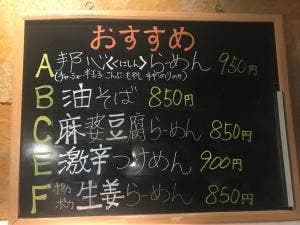 おすすめ
A 邦心くにしんらーめん 950円
(チャーシュー 半玉子 こんぶ もやし ネギ のり
B 油そば 850円
C 麻婆豆腐らーめん 850円
E 激辛つけめん 900円
F ポカポカ 生姜らーめん 850円